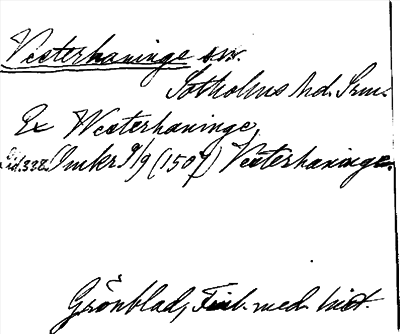 Vesterhaninge sn.
Sotholms hd. Srm.
Ex Westerhaninge,
sid. 338. Inkr 9/9 (1507) Vesterhaninge.
Grönblad, Finl. med. hist.